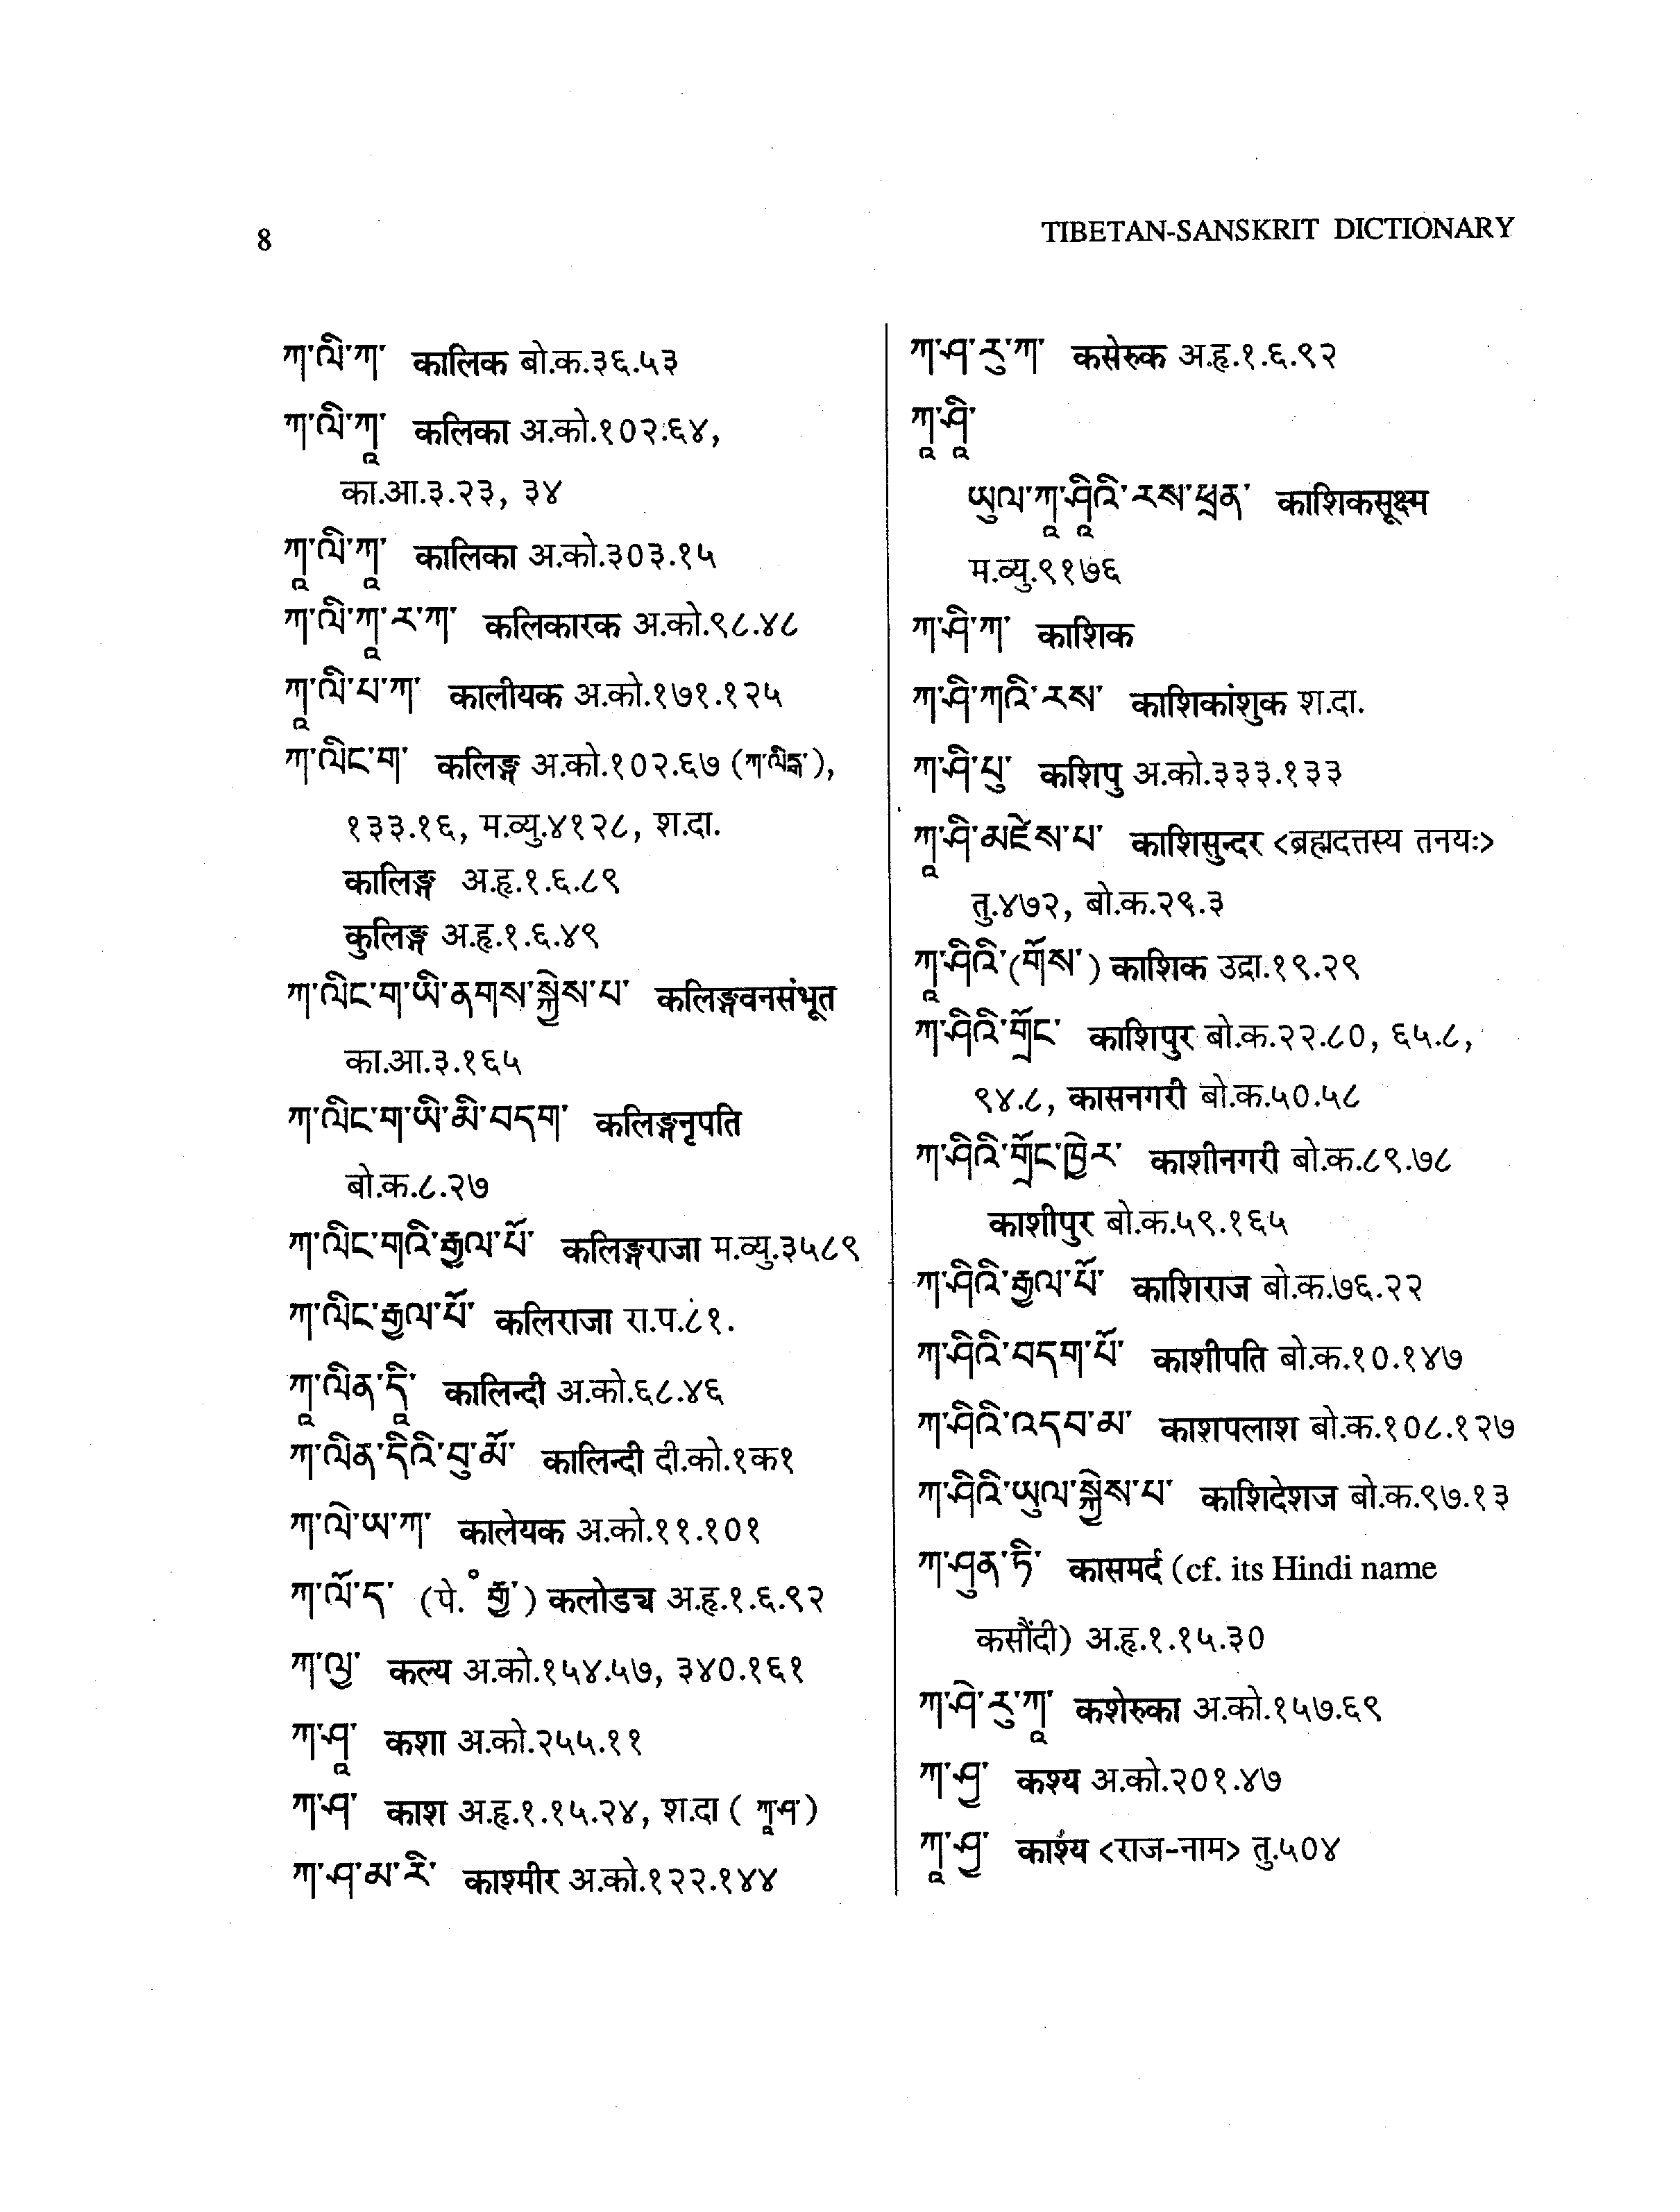 8
TIBETAN-SANSKRIT DICTIONARY
ཀ་ལི་ཀ་ कालिक बो.क.३६.५३
ཀ་ལི་ཀཱ་ कलिका अ.को.१०२.६४,
का.आ.३.२३, ३४
ཀཱ་ལི་ཀཱ་ कालिका अ.को.३०३.१५
ཀ་ལི་ཀཱ་ར་ཀ་ कलिकारक अ.को.९८.४८
ཀཱ་ལི་པ་ཀ་ कालीयक अ.को.१७१.१२५
ཀ་ལིང་ག་ कलिङ्ग अ.को.१०२.६७ (ཀ་ལིངྒ་),
१३३.१६, म.व्यु.४१२८, श.दा.
कालिङ्ग अ.हृ.१.६.८९
कुलिङ्ग अ.हृ.१.६.४९
ཀ་ལིང་ག་ཡི་ནགས་སྐྱེས་པ་ कलिङ्गवनसंभूत
का.आ.३.१६५
ཀ་ལིང་ག་ཡི་མི་བདག་ कलिङ्गनृपति
बो.क.८.२७
ཀ་ལིང་གའི་རྒྱལ་པོ་ कलिङ्गराजा म.व्यु.३५८९
ཀ་ལིང་རྒྱལ་པོ་ कलिराजा रा.प.८१.
ཀཱ་ལིན་དཱི་ कालिन्दी अ.को.६८.४६
ཀ་ལིན་དིའི་བུ་མོ་ कालिन्दी दी.को.१क१
ཀ་ལེ་ཡ་ཀ་ कालेयक अ.को.११.१०१
ཀ་ལོ་ད་ (पे.° རྒྱ་) कलोडच अ.हृ.१.६.९२
ཀ་ལྱ་ कल्य अ.को.१५४.५७, ३४०.१६१
ཀ་ཤཱ་ कशा अ.को.२५५.११
ཀ་ཤ་ काश अ.हृ.१.१५.२४, श.दा ( ཀཱ་ཤ་)
ཀ་ཤ་མ་རི་ काश्मीर अ.को.१२२.१४४
ཀ་ཤ་རུ་ཀ་ कसेरुक अ.हृ.१.६.९२
ཀཱ་ཤཱི་
ཡུལ་ཀཱ་ཤཱིའི་རས་ཕྲན་ काशिकसूक्ष्म
म.व्यु.९१७६
ཀ་ཤི་ཀ་ काशिक
ཀ་ཤི་ཀའི་རས་ काशिकांशुक श.दा.
ཀ་ཤི་པུ་ कशिपु अ.को.३३३.१३३
ཀཱ་ཤི་མཛེས་པ་ काशिसुन्दर <ब्रह्मदत्तस्य तनयः>
तु.४७२, बो.क.२९.३
ཀཱ་ཤིའི་(གོས་) काशिक उद्रा.१९.२९
ཀ་ཤིའི་གྲོང་ काशिपुर बो.क.२२.८०, ६५.८,
९४.८, कासनगरी बो.क.५०.५८
ཀ་ཤིའི་གྲོང་ཁྱེར་ काशीनगरी बो.क.८९.७८
काशीपुर बो.क.५९.१६५
ཀ་ཤིའི་རྒྱལ་པོ་ काशिराज बो.क.७६.२२
ཀ་ཤིའི་བདག་པོ་ काशीपति बो.क.१०.१४७
ཀ་ཤིའི་འདབ་མ་ काशपलाश बो.क.१०८.१२७
ཀ་ཤིའི་ཡུལ་སྐྱེས་པ་ काशिदेशज बो.क.९७.१३
ཀ་ཤུན་ཏི་ कासमर्द (cf. its Hindi name
कसौंदी) अ.हृ.१.१५.३०
ཀ་ཤེ་རུ་ཀཱ་ कशेरुका अ.को.१५७.६९
ཀ་ཤྱ་ कश्य अ.को.२०१.४७
ཀཱ་ཤྱ་ काश्य <राज-नाम> तु.५०४